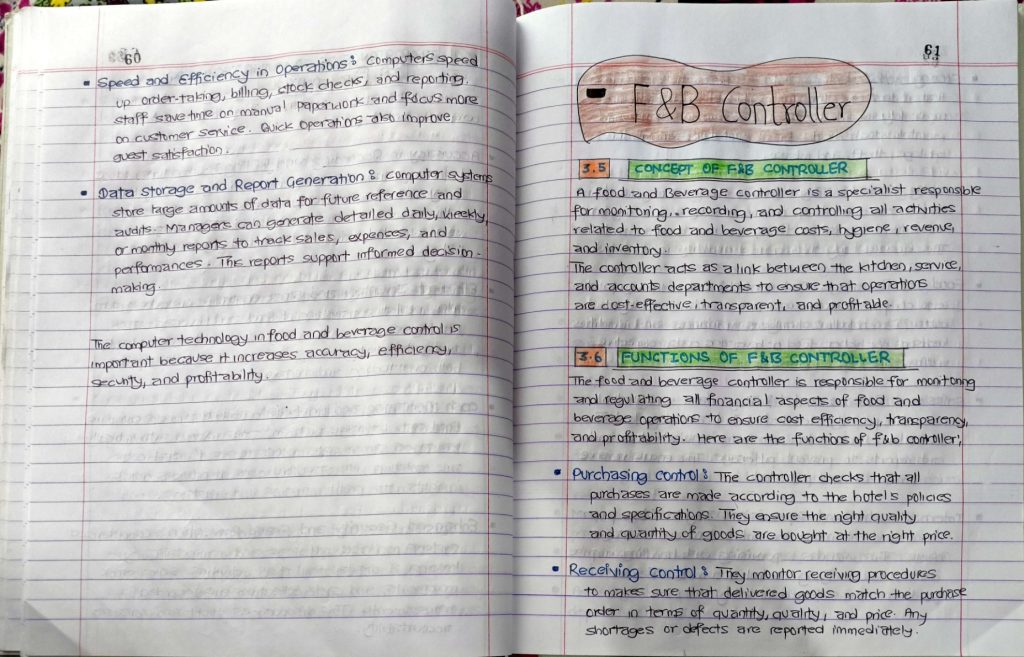 60
• Speed and Efficiency in Operations: Computers speed
up order-taking, billing, stock checks, and reporting.
staff save time on manual paperwork and focus more
on customer service. Quick operations also improve
guest satisfaction.
• Data Storage and Report Generation: computer systems
store large amounts of data for future reference and
audits. Managers can generate detailed daily, weekly,
or monthly reports to track sales, expences, and
performances. This reports support informed decision-
making.
The computer technology in food and beverage control is
important because it increases accuracy, efficiency,
security, and profitability.
61
- F&B Controller
3.5 CONCEPT OF F&B CONTROLLER
A food and Beverage controller is a specialist responsible
for monitoring, recording, and controlling all activities
related to food and beverage costs, hygiene, revenue,
and inventory.
The controller acts as a link between the kitchen, service,
and accounts departments to ensure that operations
are cost-effective, transparent, and profitable.
3.6 FUNCTIONS OF F&B CONTROLLER
The food and beverage controller is responsible for monitoring
and regulating all financial aspects of food and
beverage operations to ensure cost efficiency, transparency,
and profitability. Here are the functions of f&b controller;
• Purchasing control: The controller checks that all
purchases are made according to the hotel's policies
and specifications. They ensure the right quality
and quantity of goods are bought at the right price.
• Receiving control: They monitor receiving procedures
to makes sure that delivered goods match the purchase
order in terms of quantity, quality, and price. Any
shortages or defects are reported immediately.